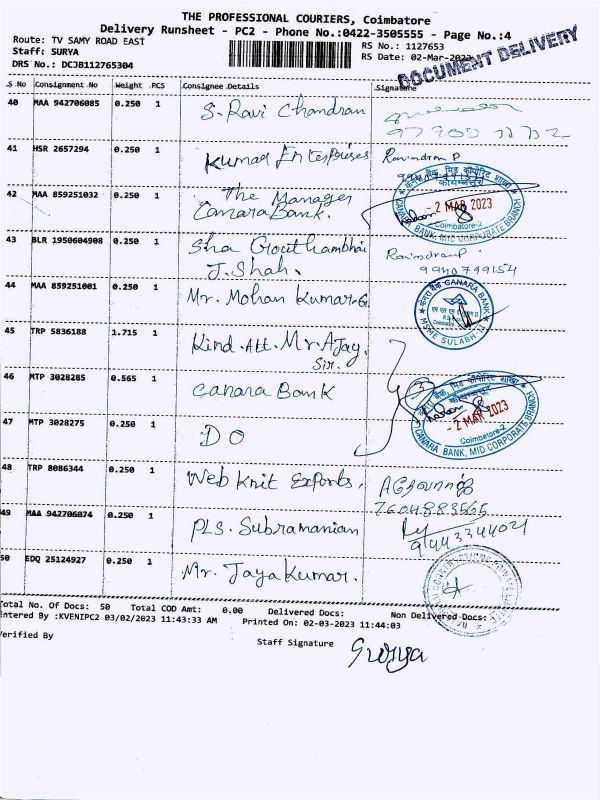 THE PROFESSIONAL COURIERS, Coimbatore
Delivery Runsheet - PC2 - Phone No.:0422-3505555 - Page No.:4
Route: TV SAMY ROAD EAST
RS No.: 1127653
Staff: SURYA
RS Date: 02-Mar-2023
DRS No.: DCJB112765304
DOCUMENT DELIVERY
S No Consignment No Weight PCS Consignee Details Signature
40 MAA 942706085 0.250 1 S. Ravi Chandran
41 HSR 2657294 0.250 1 Kumad Enterprises Ravindran P
42 MAA 859251032 0.250 1 The Manager
Canara Bank.
- 2 MAR 2023
Coimbatore-2
CANARA BANK, MID CORPORATE BRANCH
43 BLR 1950604908 0.250 1 Sha Gouthambhai
J. Shah.
Ravindran P
9940799154
44 MAA 859251001 0.250 1 Mr. Mohan Kumar. G
CANARA BANK
MSME SULABH
45 TRP 5836188 1.715 1 Kind. Att. Mr. Ajay.
Sir.
46 MTP 3028285 0.565 1 Canara Bank
47 MTP 3028275 0.250 1 DO
- 2 MAR 2023
Coimbatore-2
CANARA BANK, MID CORPORATE BRANCH
48 TRP 8086344 0.250 1 Web Knit Exports.
7604883565
49 MAA 942706074 0.250 1 PLS. Subramanian
9443344021
50 EDQ 25124927 0.250 1 Mr. Jaya Kumar.
Total No. Of Docs: 50 Total COD Amt: 0.00 Delivered Docs: Non Delivered Docs:
Entered By :KVENIPC2 03/02/2023 11:43:33 AM Printed On: 02-03-2023 11:44:03
Verified By Staff Signature
Surya